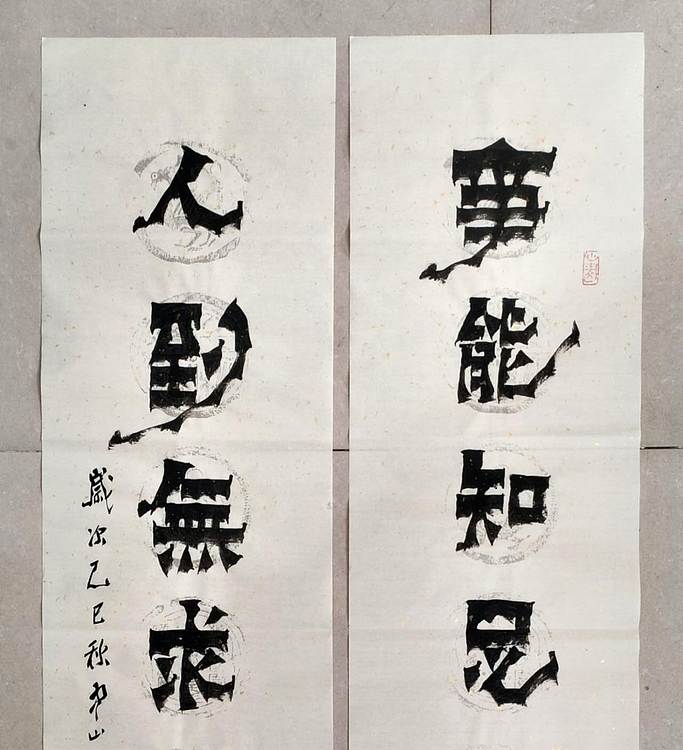 事能知足
人到無求
歲次乙巳秋